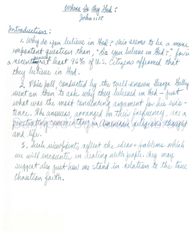 Where Is Thy God?
John 1:18
Introduction:
1. Why do you believe in God? This seems to be a more
important question than, "do you believe in God?" for in
a recent poll 96% of U.S. citizens affirmed that
they believe in God.
2. This poll conducted by the well known George Gallup
went on then to ask why they believed in God - just
what was the most convincing argument for his exis-
tence. The answers, arranged in their frequency, is a
penetrating commentary on American religious thought
and life.
3. such viewpoints reflect the ideas + problems which
we will encounter, in dealing with people. They may
suggest also just how we stand in relation to the true
Christian faith.